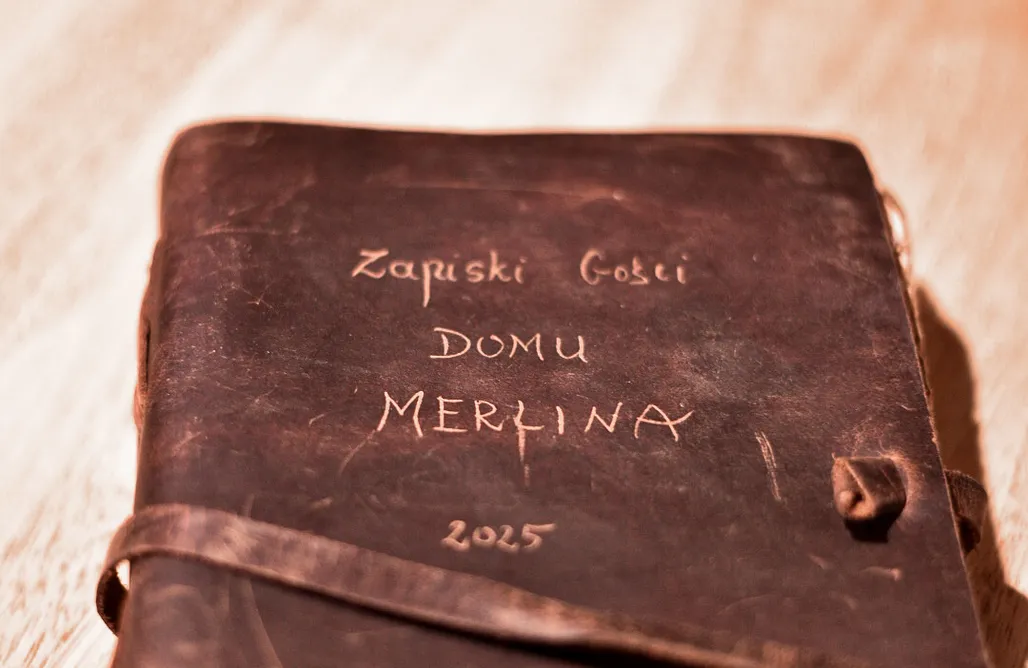 Zapiski Gości
DOMU
MERLINA
2025